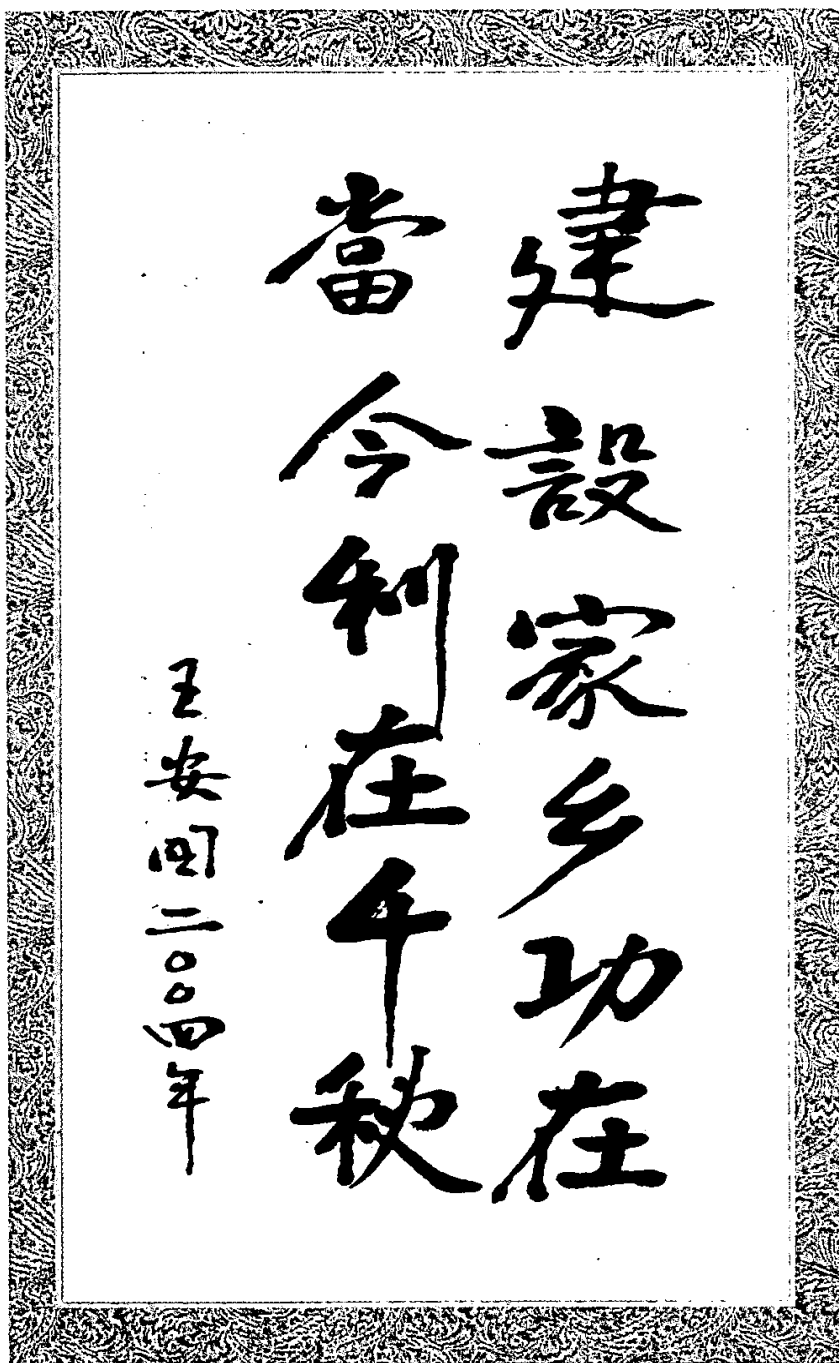 建設家乡功在
當今利在千秋
王安国二〇〇四年